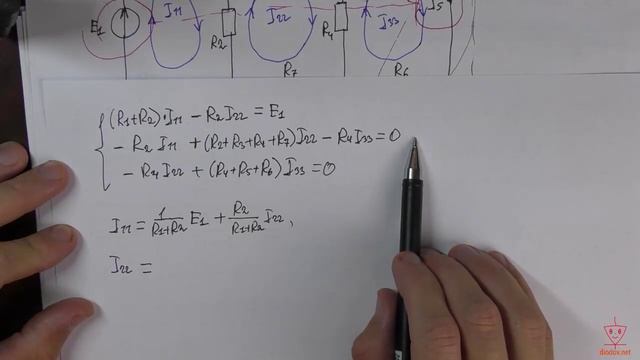 E1 I11 R2 I22 R4 I33 I5
R7 R6
(R1+R2)·I11 − R2I22 = E1
− R2 I11 + (R2+R3+R4+R7)I22 − R4I33 = 0
− R4I22 + (R4+R5+R6)I33 = 0
I11 = 1/(R1+R2) E1 + R2/(R1+R2) I22,
I22 =
diodov.net